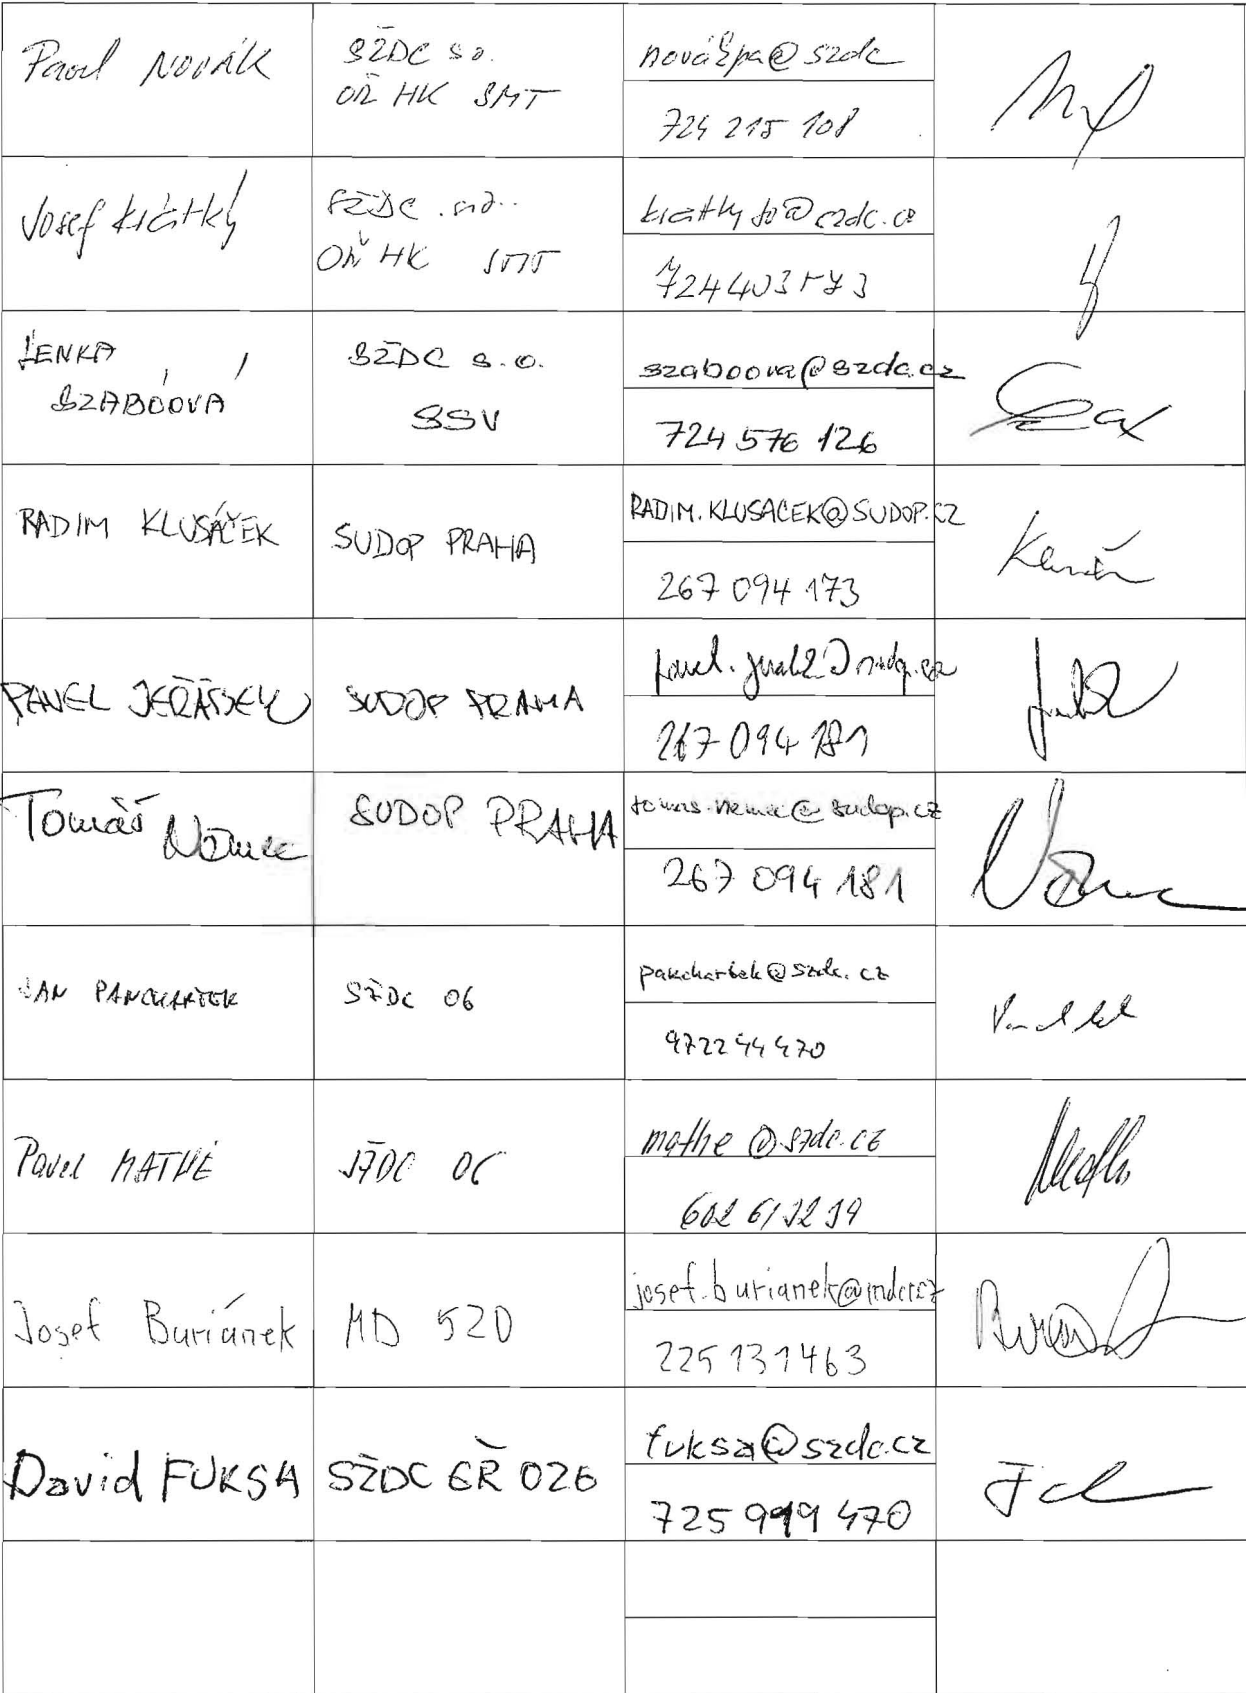 Pavel NOVÁK
SŽDC s.o.
OŘ HK SMT
novákpa@szdc
724 215 108
Josef Krátký
SŽDC
OŘ HK SMT
LENKA
SZABÓOVÁ
SŽDC s.o.
SSV
szaboova@szdc.cz
724 576 126
RADIM KLUSÁČEK
SUDOP PRAHA
RADIM.KLUSACEK@SUDOP.CZ
267 094 173
PAVEL JEŘÁBEK
SUDOP PRAHA
267 094 181
Tomáš Němec
SUDOP PRAHA
tomas.nemec@sudop.cz
267 094 181
JAN PANCHARTEK
SŽDC 06
panchartek@szdc.cz
972244470
Pavel MATHÉ
SŽDC 06
mathe@szdc.cz
Josef Buriánek
MD 520
josef.burianek@mdcr.cz
225 131 463
David FUKSA
SŽDC GŘ 026
fuksa@szdc.cz
725 999 470